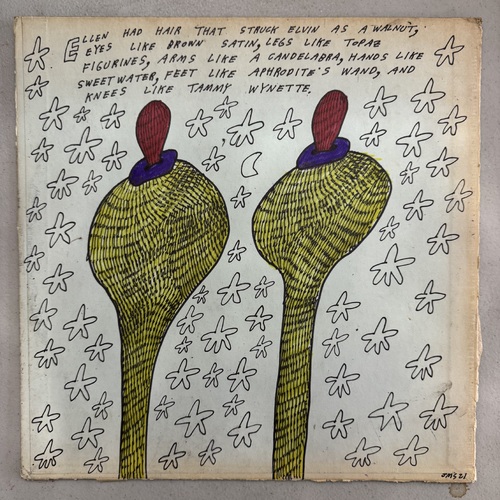 ELLEN HAD HAIR THAT STRUCK ELVIN AS A WALNUT,
EYES LIKE BROWN SATIN, LEGS LIKE TOPAZ
FIGURINES, ARMS LIKE A CANDELABRA, HANDS LIKE
SWEETWATER, FEET LIKE APHRODITE'S WAND, AND
KNEES LIKE TAMMY WYNETTE.
JMS 21